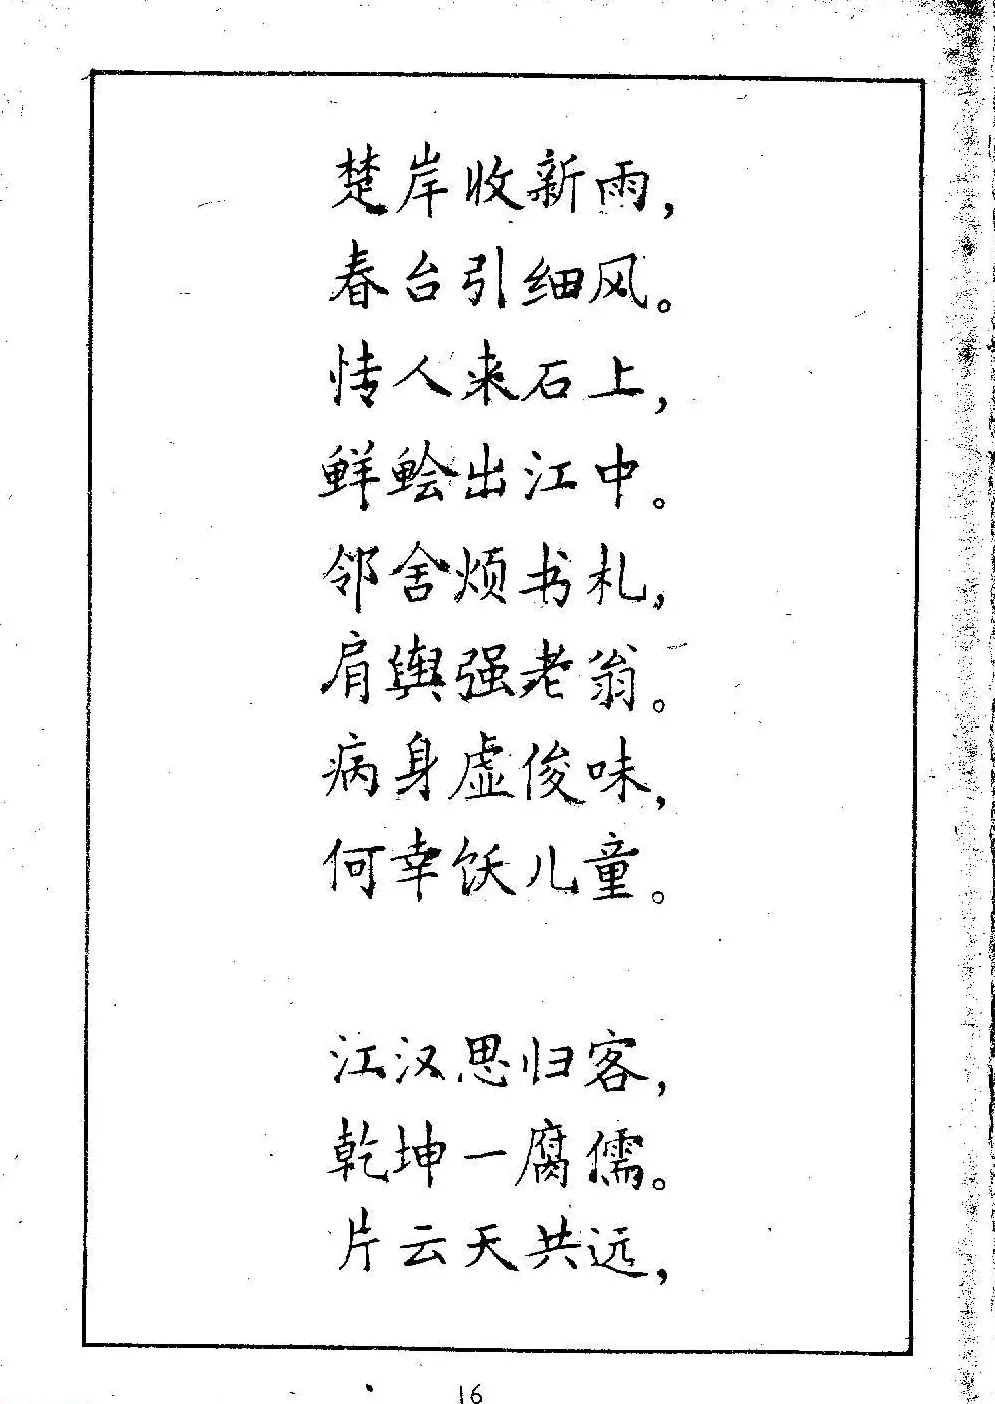 楚岸收新雨，
春台引细风。
情人来石上，
鲜鲙出江中。
邻舍烦书札，
肩舆强老翁。
病身虚俊味，
何幸饫儿童。
江汉思归客，
乾坤一腐儒。
片云天共远，
16